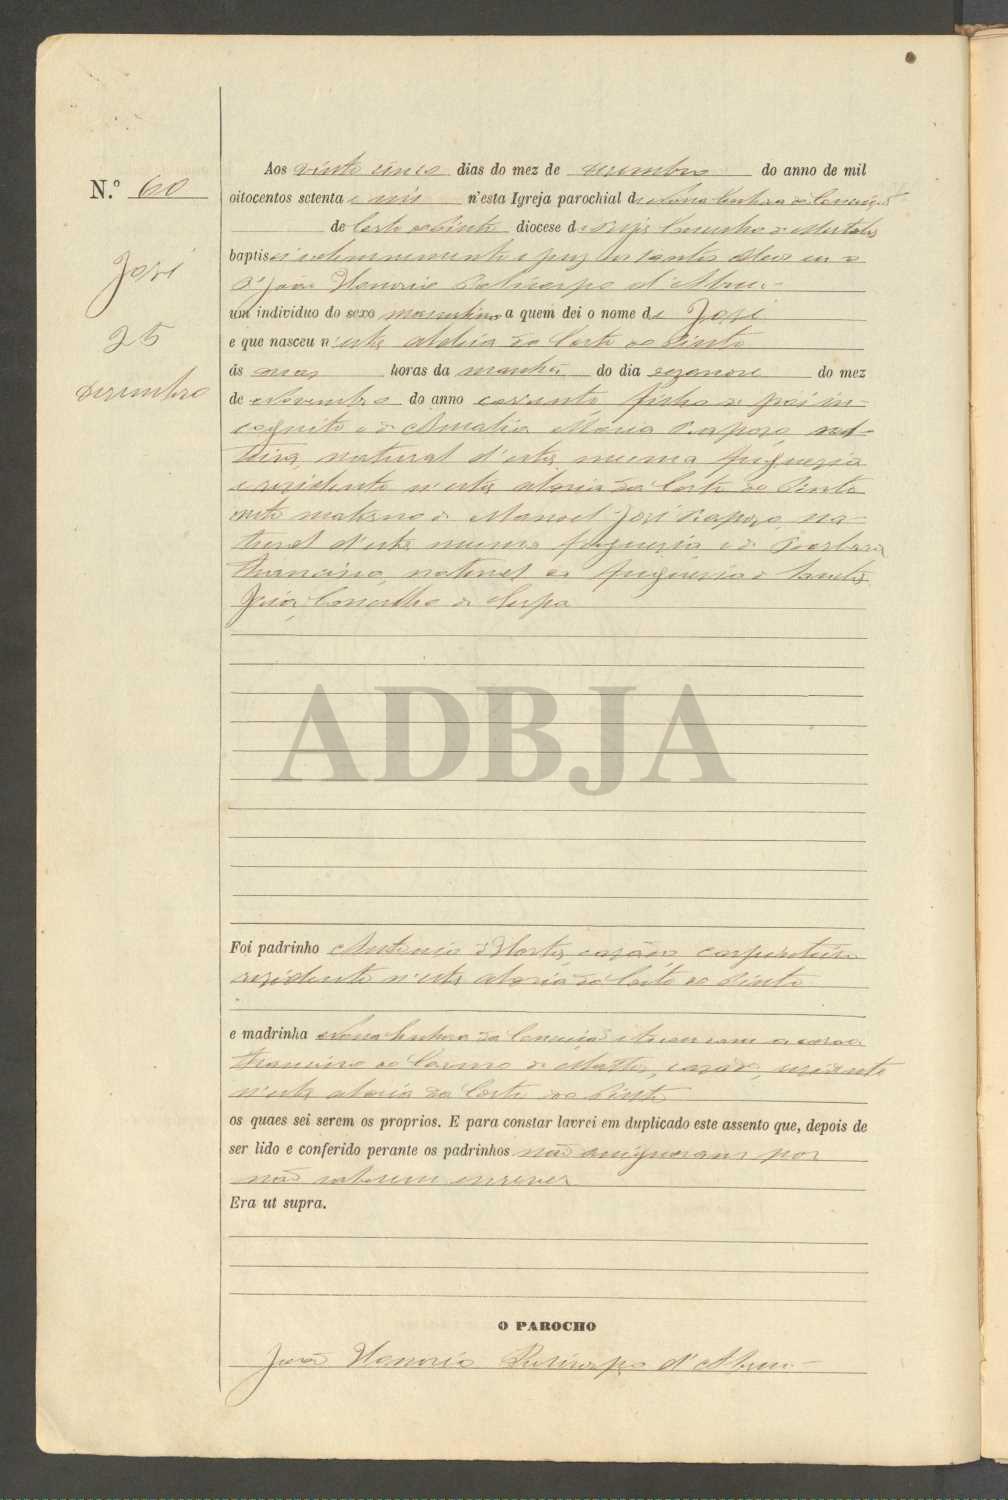 N.º 60
José
25
Dezembro
Aos vinte cinco dias do mez de dezembro do anno de mil
oitocentos setenta e seis n'esta Igreja parochial de Nossa Senhora da Conceição
de Corte do Pinto diocese de Beja Concelho de Mertola
baptisei solemnemente e puz os Santos Oleos eu o
P.e João Honorio Policarpo d'Abreu
um individuo do sexo masculino a quem dei o nome de José
e que nasceu n'esta aldeia da Corte do Pinto
ás horas da manhã do dia dezanove do mez
de Novembro do anno corrente filho de pai in-
cognito e de Amalia Maria Rapozo, sol-
teira, natural d'esta mesma freguezia
e rezidente n'esta aldeia da Corte do Pinto
neto materno de Manoel José Rapozo, na-
tural d'esta mesma freguezia e de Barbara
Francisca, natural da freguezia de Santa
Iria, Concelho de Serpa
ADBJA
Foi padrinho Antonio d'Horta, casado, carpinteiro
rezidente n'esta aldeia da Corte do Pinto
e madrinha Nossa Senhora da Conceição e tocou com a coroa
Francisco do Carmo de Mattos, casado, rezidente
n'esta aldeia da Corte do Pinto
os quaes sei serem os proprios. E para constar lavrei em duplicado este assento que, depois de
ser lido e conferido perante os padrinhos não assignaram por
não saberem escrever
Era ut supra.
O PAROCHO
João Honorio Policarpo d'Abreu